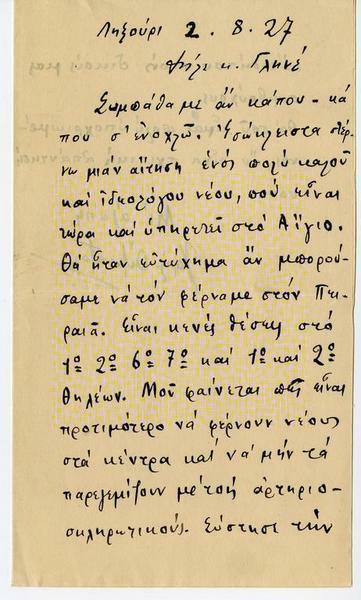 Ληξούρι 2.8.27
Φίλε κ. Γληνέ
Συμπάθα με ἄν κάπου-κά
που σ' ἐνοχλῶ. Ἐσώκλειστα στέρ
νω μιαν αἴτηση ἑνός πολύ καλοῦ
καί ἰδεολόγου νέου, πού εἶναι
τώρα καί ὑπηρετεῖ στό Αἴγιο.
Θά ἦταν εὐτύχημα ἄν μπορού-
σαμε νά τόν φέρναμε στόν Πει
ραιᾶ. Εἶναι κενές θέσεις στό
1º 2º 6º 7º καί 1º καί 2º
θηλέων. Μοῦ φαίνεται πώς εἶναι
προτιμότερο νά φέρνουν νέους
στά κέντρα καί νά μήν τά
παρεγεμίζουν μέ τούς ἀρτηριο-
σκληρωτικούς. Σύστησε τήν